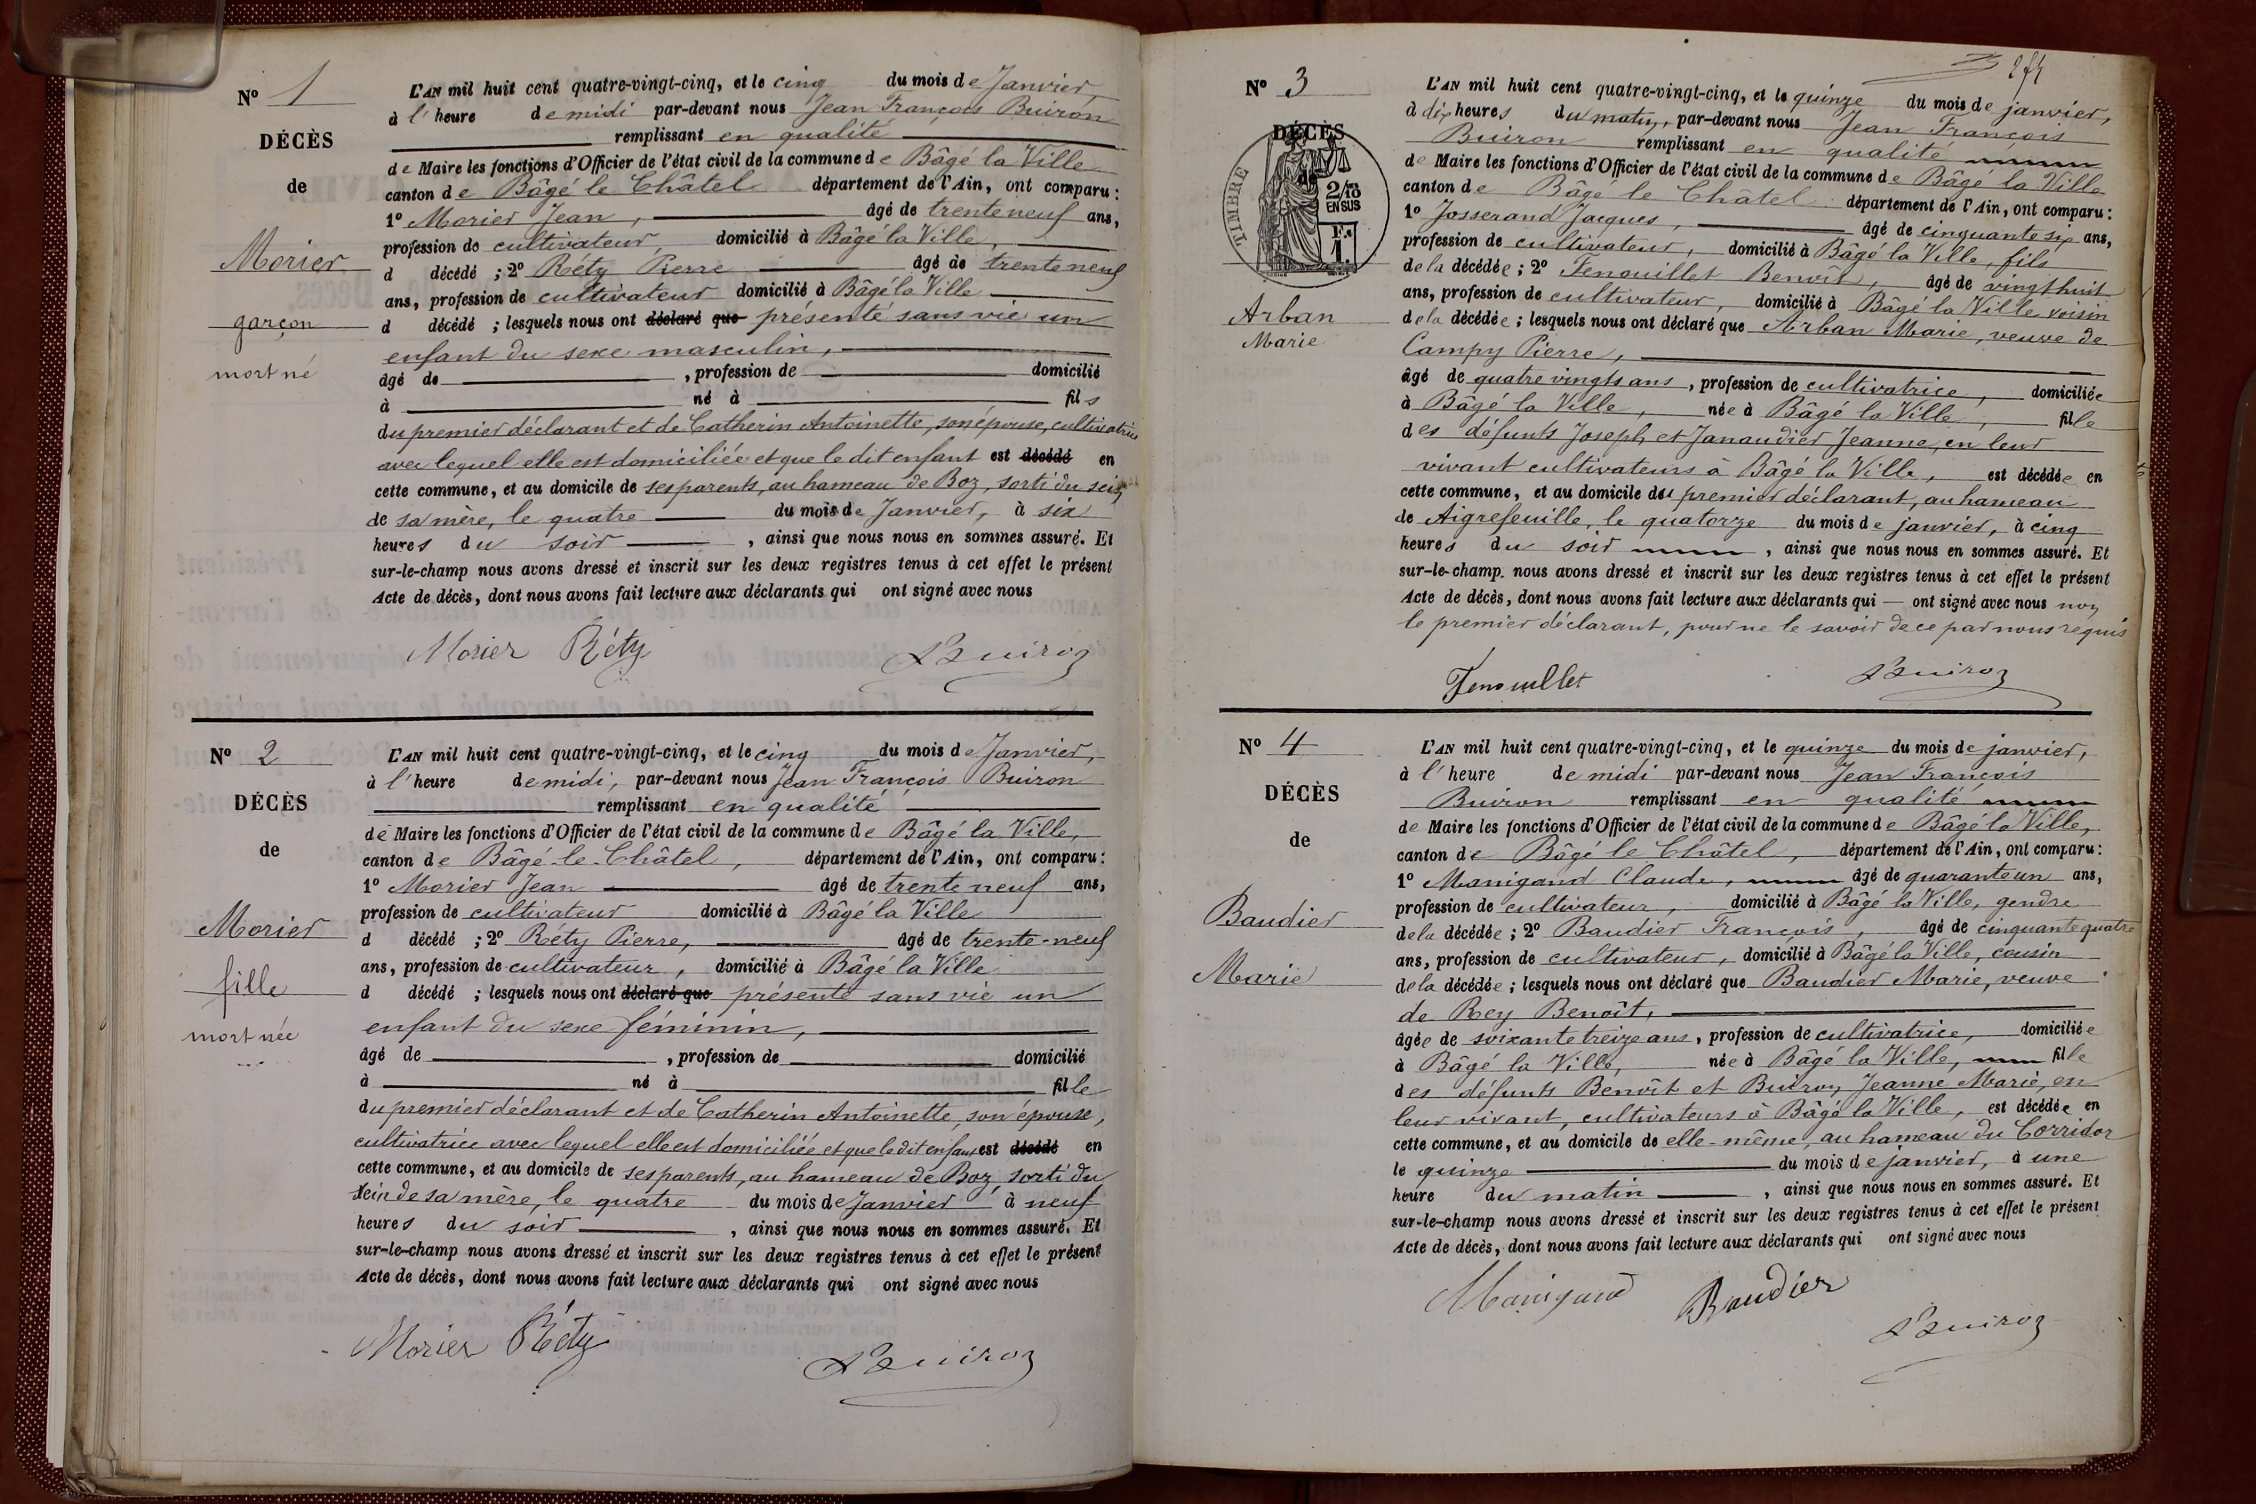 N° 1
DÉCÈS
de
Morier
garçon
mort né
L'AN mil huit cent quatre-vingt-cinq, et le cinq du mois de Janvier,
à l'heure de midi par-devant nous Jean François Buiron
remplissant en qualité
de Maire les fonctions d'Officier de l'état civil de la commune de Bâgé la Ville
canton de Bâgé le Châtel département de l'Ain, ont comparu :
1° Morier Jean, âgé de trente neuf ans,
profession de cultivateur, domicilié à Bâgé la Ville,
d décédé ; 2° Réty Pierre âgé de trente neuf
ans, profession de cultivateur domicilié à Bâgé la Ville
d décédé ; lesquels nous ont déclaré que présenté sans vie un
enfant du sexe masculin,
âgé de , profession de domicilié
à né à fils
du premier déclarant et de Catherin Antoinette, son épouse, cultivatrice
avec lequel elle est domiciliée et que le dit enfant est décédé en
cette commune, et au domicile de ses parents, au hameau de Boz, sorti du sein
de sa mère, le quatre du mois de Janvier, à six
heures du soir , ainsi que nous nous en sommes assuré. Et
sur-le-champ nous avons dressé et inscrit sur les deux registres tenus à cet effet le présent
Acte de décès, dont nous avons fait lecture aux déclarants qui ont signé avec nous
Morier Réty Buiron
N° 2
DÉCÈS
de
Morier
fille
mort née
L'AN mil huit cent quatre-vingt-cinq, et le cinq du mois de Janvier,
à l'heure de midi, par-devant nous Jean François Buiron
remplissant en qualité
de Maire les fonctions d'Officier de l'état civil de la commune de Bâgé la Ville,
canton de Bâgé-le-Châtel, département de l'Ain, ont comparu :
1° Morier Jean âgé de trente neuf ans,
profession de cultivateur domicilié à Bâgé la Ville
d décédé ; 2° Réty Pierre, âgé de trente-neuf
ans, profession de cultivateur, domicilié à Bâgé la Ville
d décédé ; lesquels nous ont déclaré que présenté sans vie un
enfant du sexe féminin,
âgé de , profession de domicilié
à né à fille
du premier déclarant et de Catherin Antoinette, son épouse,
cultivatrice avec lequel elle est domiciliée et que le dit enfant est décédé en
cette commune, et au domicile de ses parents, au hameau de Boz, sorti du
sein de sa mère, le quatre du mois de Janvier à neuf
heures du soir , ainsi que nous nous en sommes assuré. Et
sur-le-champ nous avons dressé et inscrit sur les deux registres tenus à cet effet le présent
Acte de décès, dont nous avons fait lecture aux déclarants qui ont signé avec nous
Morier Réty Buiron
N° 3
DÉCÈS
de
TIMBRE
2/10
EN SUS
Arban
Marie
L'AN mil huit cent quatre-vingt-cinq, et le quinze du mois de janvier,
à dix heures du matin, par-devant nous Jean François
Buiron remplissant en qualité
de Maire les fonctions d'Officier de l'état civil de la commune de Bâgé la Ville
canton de Bâgé le Châtel département de l'Ain, ont comparu :
1° Josserand Jacques, âgé de cinquante six ans,
profession de cultivateur, domicilié à Bâgé la Ville, fils
de la décédée ; 2° Fenouillet Benoît, âgé de vingt huit
ans, profession de cultivateur, domicilié à Bâgé la Ville voisin
de la décédée ; lesquels nous ont déclaré que Arban Marie, veuve de
Campy Pierre,
âgé de quatre vingts ans, profession de cultivatrice, domiciliée
à Bâgé la Ville, née à Bâgé la Ville, fille
des défunts Joseph et Janaudier Jeanne, en leur
vivant cultivateurs à Bâgé la Ville, est décédée en
cette commune, et au domicile du premier déclarant, au hameau
de Aigrefeuille, le quatorze du mois de janvier, à cinq
heures du soir , ainsi que nous nous en sommes assuré. Et
sur-le-champ nous avons dressé et inscrit sur les deux registres tenus à cet effet le présent
Acte de décès, dont nous avons fait lecture aux déclarants qui ont signé avec nous non
le premier déclarant, pour ne le savoir de ce par nous requis
Fenouillet Buiron
N° 4
DÉCÈS
de
Baudier
Marie
L'AN mil huit cent quatre-vingt-cinq, et le quinze du mois de janvier,
à l'heure de midi par-devant nous Jean François
Buiron remplissant en qualité
de Maire les fonctions d'Officier de l'état civil de la commune de Bâgé la Ville,
canton de Bâgé le Châtel, département de l'Ain, ont comparu :
1° Manigand Claude, âgé de quarante un ans,
profession de cultivateur, domicilié à Bâgé la Ville, gendre
de la décédée ; 2° Baudier François, âgé de cinquante quatre
ans, profession de cultivateur, domicilié à Bâgé la Ville, cousin
de la décédée ; lesquels nous ont déclaré que Baudier Marie, veuve
de Rey Benoît,
âgée de soixante treize ans, profession de cultivatrice, domiciliée
à Bâgé la Ville, née à Bâgé la Ville, fille
des défunts Benoît et Buiron Jeanne Marie, en
leur vivant, cultivateurs à Bâgé la Ville, est décédée en
cette commune, et au domicile de elle-même, au hameau du Corridor
le quinze du mois de janvier, à une
heure du matin , ainsi que nous nous en sommes assuré. Et
sur-le-champ nous avons dressé et inscrit sur les deux registres tenus à cet effet le présent
Acte de décès, dont nous avons fait lecture aux déclarants qui ont signé avec nous
Manigand Baudier Buiron